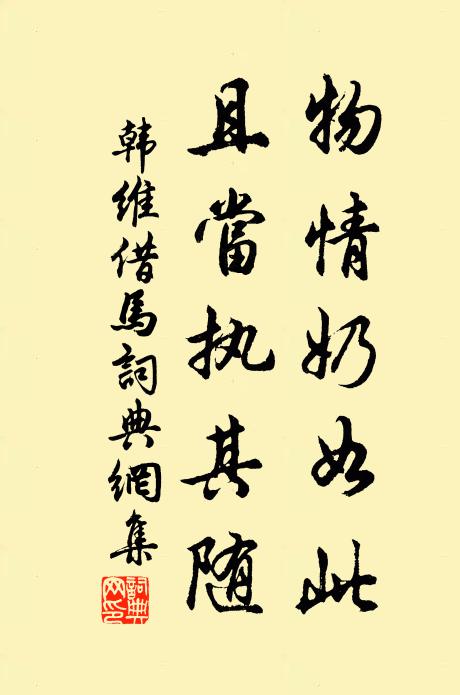 物情奶如此
且當执其随
韩维借馬詞典網集
詞典網印